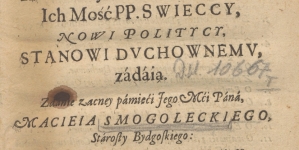 Ich Mość PP. SWIECCY,
NOWI POLITYCY,
STANOWI DVCHOWNEMV,
zádáią.
Zacney pámięći Jego Mći Páná,
MACIEIA SMOGOLECKIEGO,
Stárosty Bydgoskiego: